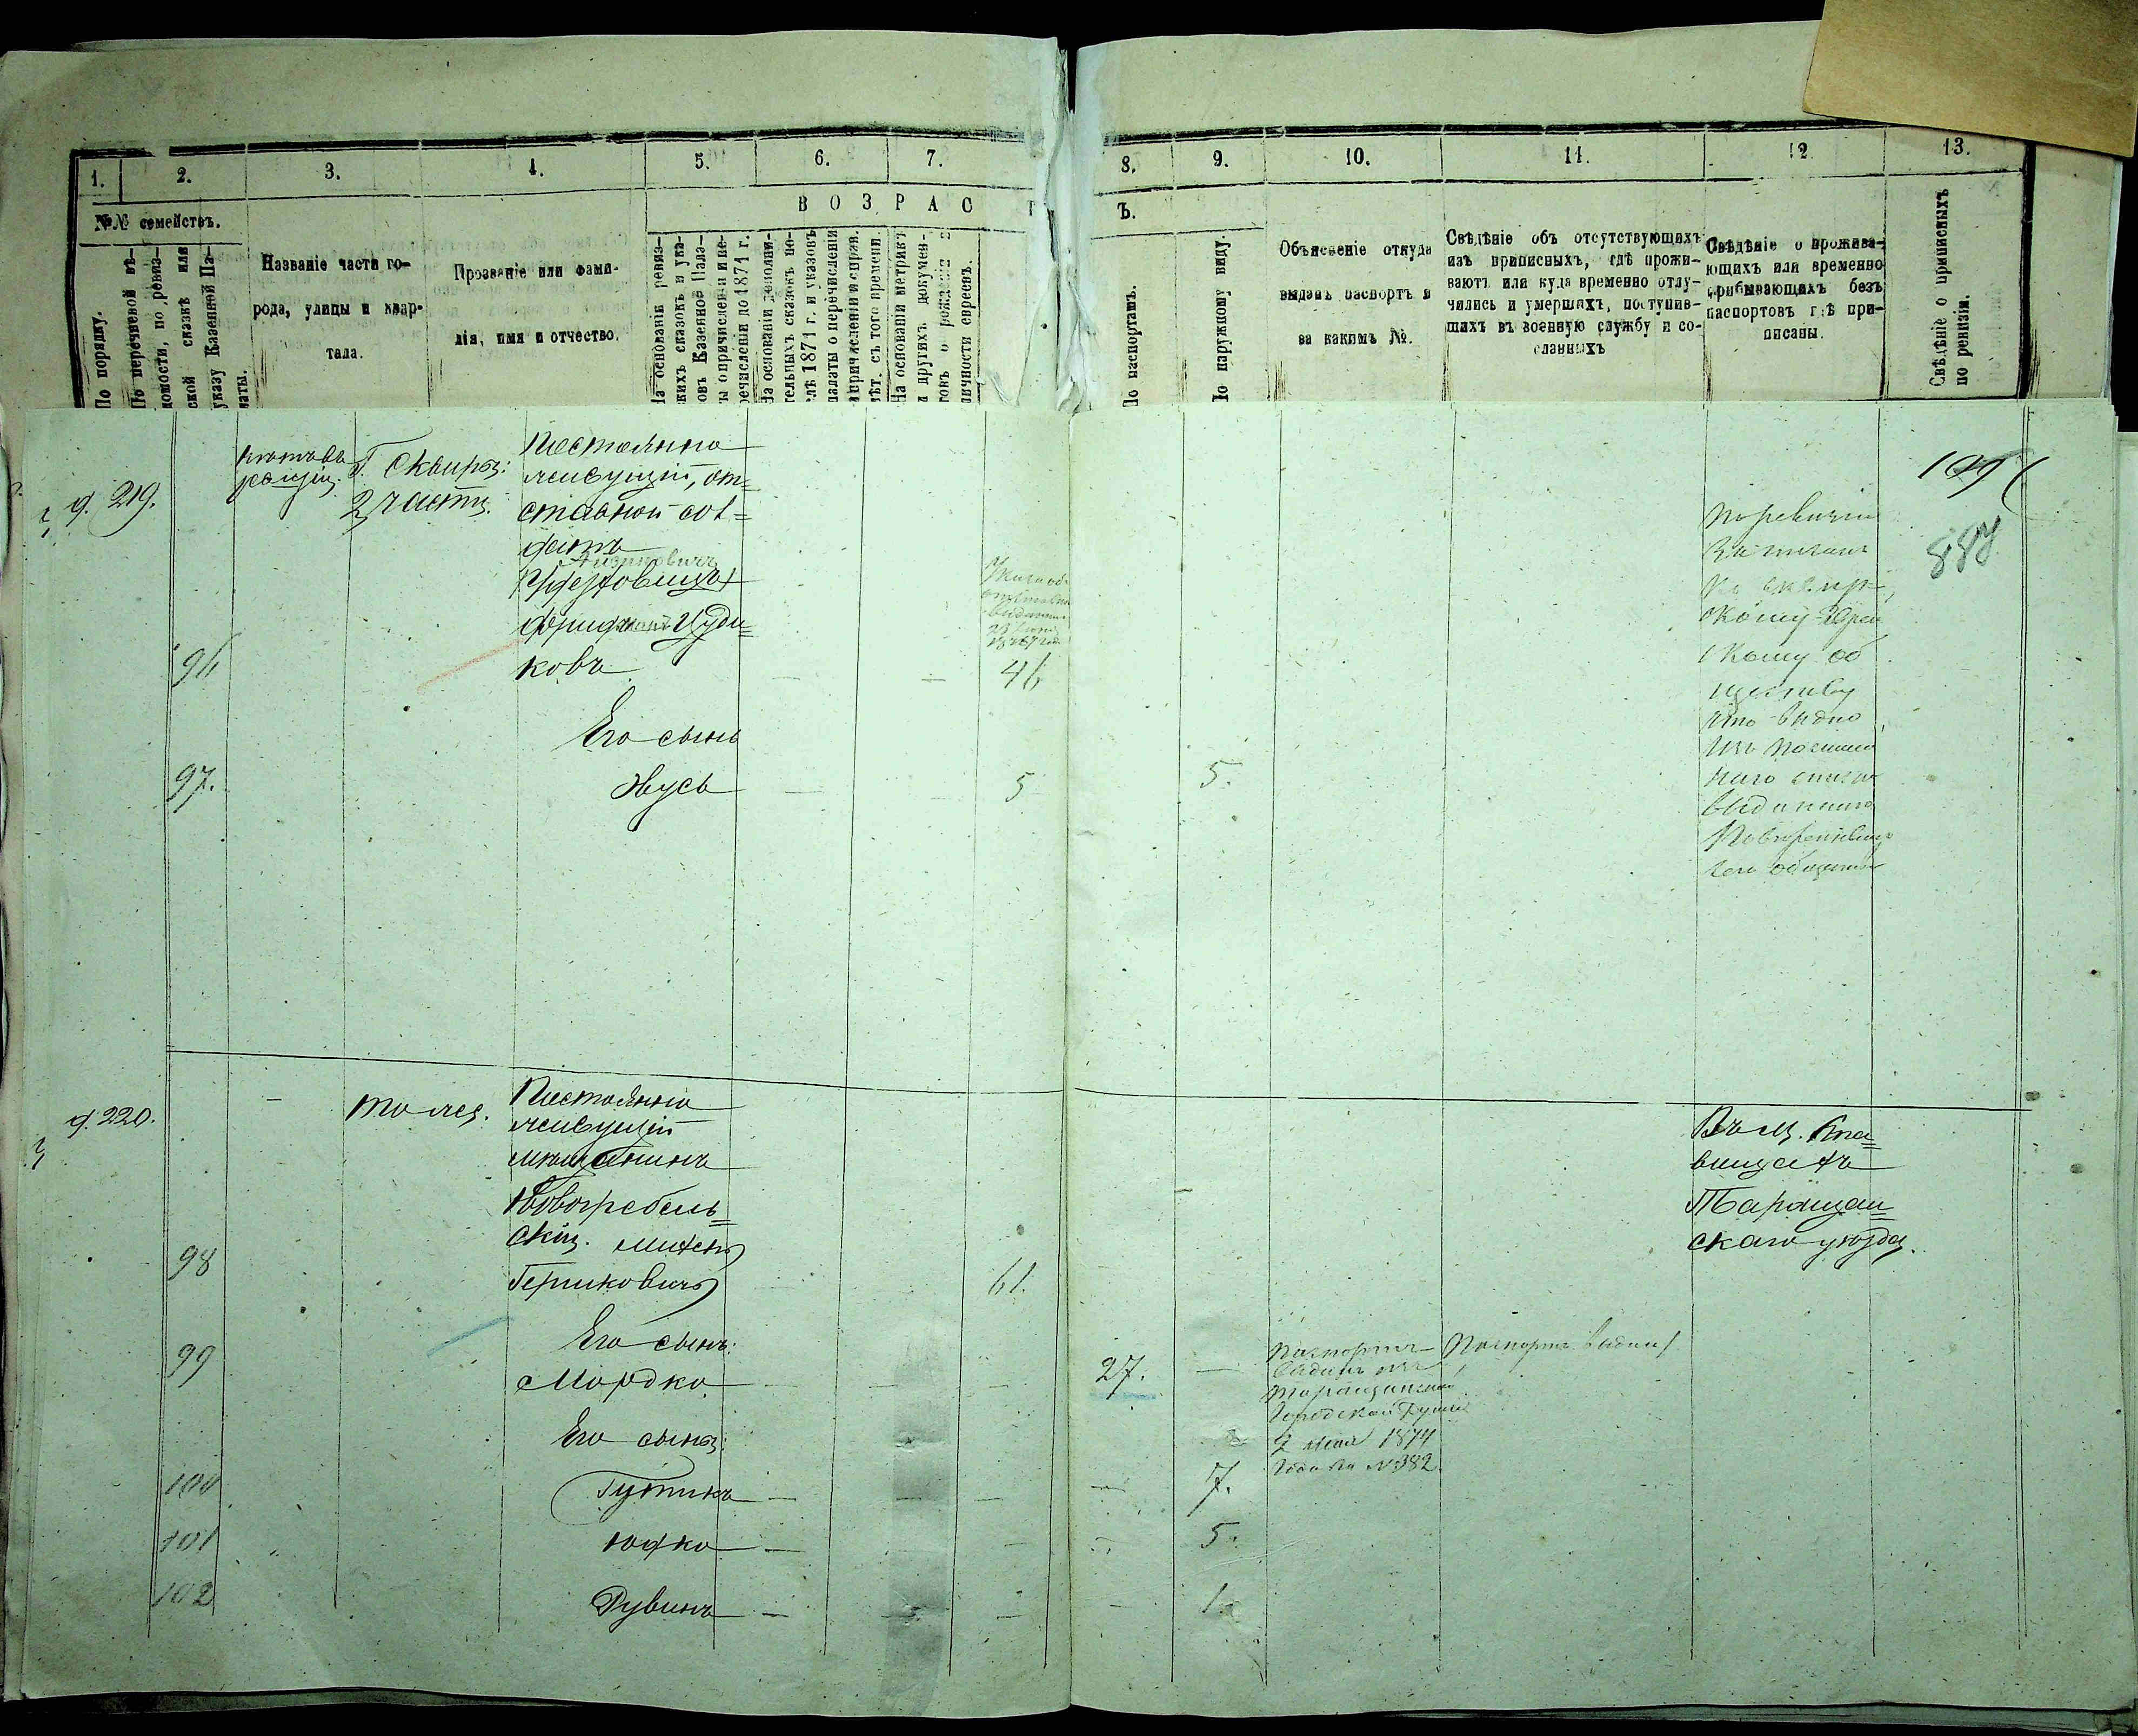 1.
2.
3.
4.
5.
6.
7.
8.
9.
10.
11.
12
13.
№№ семействъ.
По порядку.
По перечневой вѣ-
домости, по ревиз-
ской сказкѣ или
указу Казенной Па-
латы.
Названіе части го-
рода, улицы и квар-
тала.
Прозваніе или фами-
лія, имя и отчество.
ВОЗРАСТ
Ъ.
На основаніи ревиз-
скихъ сказокъ и ука-
зовъ Казенной Пала-
ты о причисленіи и пе-
речисленіи до 1871 г.
На основаніи дополни-
тельныхъ сказокъ по-
слѣ 1871 г. и указовъ
палаты о перечисленіи
и причисленіи и справ.
лѣт. съ того времени.
На основаніи метрикъ
и другихъ докумен-
товъ о рожденіи и
личности евреевъ.
По паспортамъ.
По наружному виду.
Объясненіе откуда
выданъ паспортъ и
за какимъ №.
Свѣдѣніе объ отсутствующихъ
изъ приписныхъ, гдѣ прожи-
ваютъ или куда временно отлу-
чились и умершихъ, поступив-
шихъ въ военную службу и со-
сланныхъ
Свѣдѣніе о прожива-
ющихъ или временно
прибывающихъ безъ
паспортовъ гдѣ при-
писаны.
Свѣдѣніе о приписныхъ
по ревизіи.
д. 219.
Г. Сквиры:
2 части.
Постоянно
живущій, от=
ставной сол=
датъ
Цуди=
ковъ
96
46
Его сынъ
97.
Нусь
5
5.
По ревизіи
записанъ
къ Сквир=
скому Евре
скому об
ществу
что видно
887
д. 220.
тоже.
Постоянно
живущій
мѣщанинъ
Новогребель=
скій. Михель
98
Гершковичъ
61.
Въ м. Кна=
вищахъ
Таращан=
скаго уѣзда.
99
Его сынъ:
Мордко
27.
Паспортъ
выданъ изъ
Таращанской
Городской Думы
2 мая 1874
года за №382.
Паспортъ выданъ
Его сыны:
100
Гутникъ
7.
101
Юдко
5.
102
Рувинъ
1.